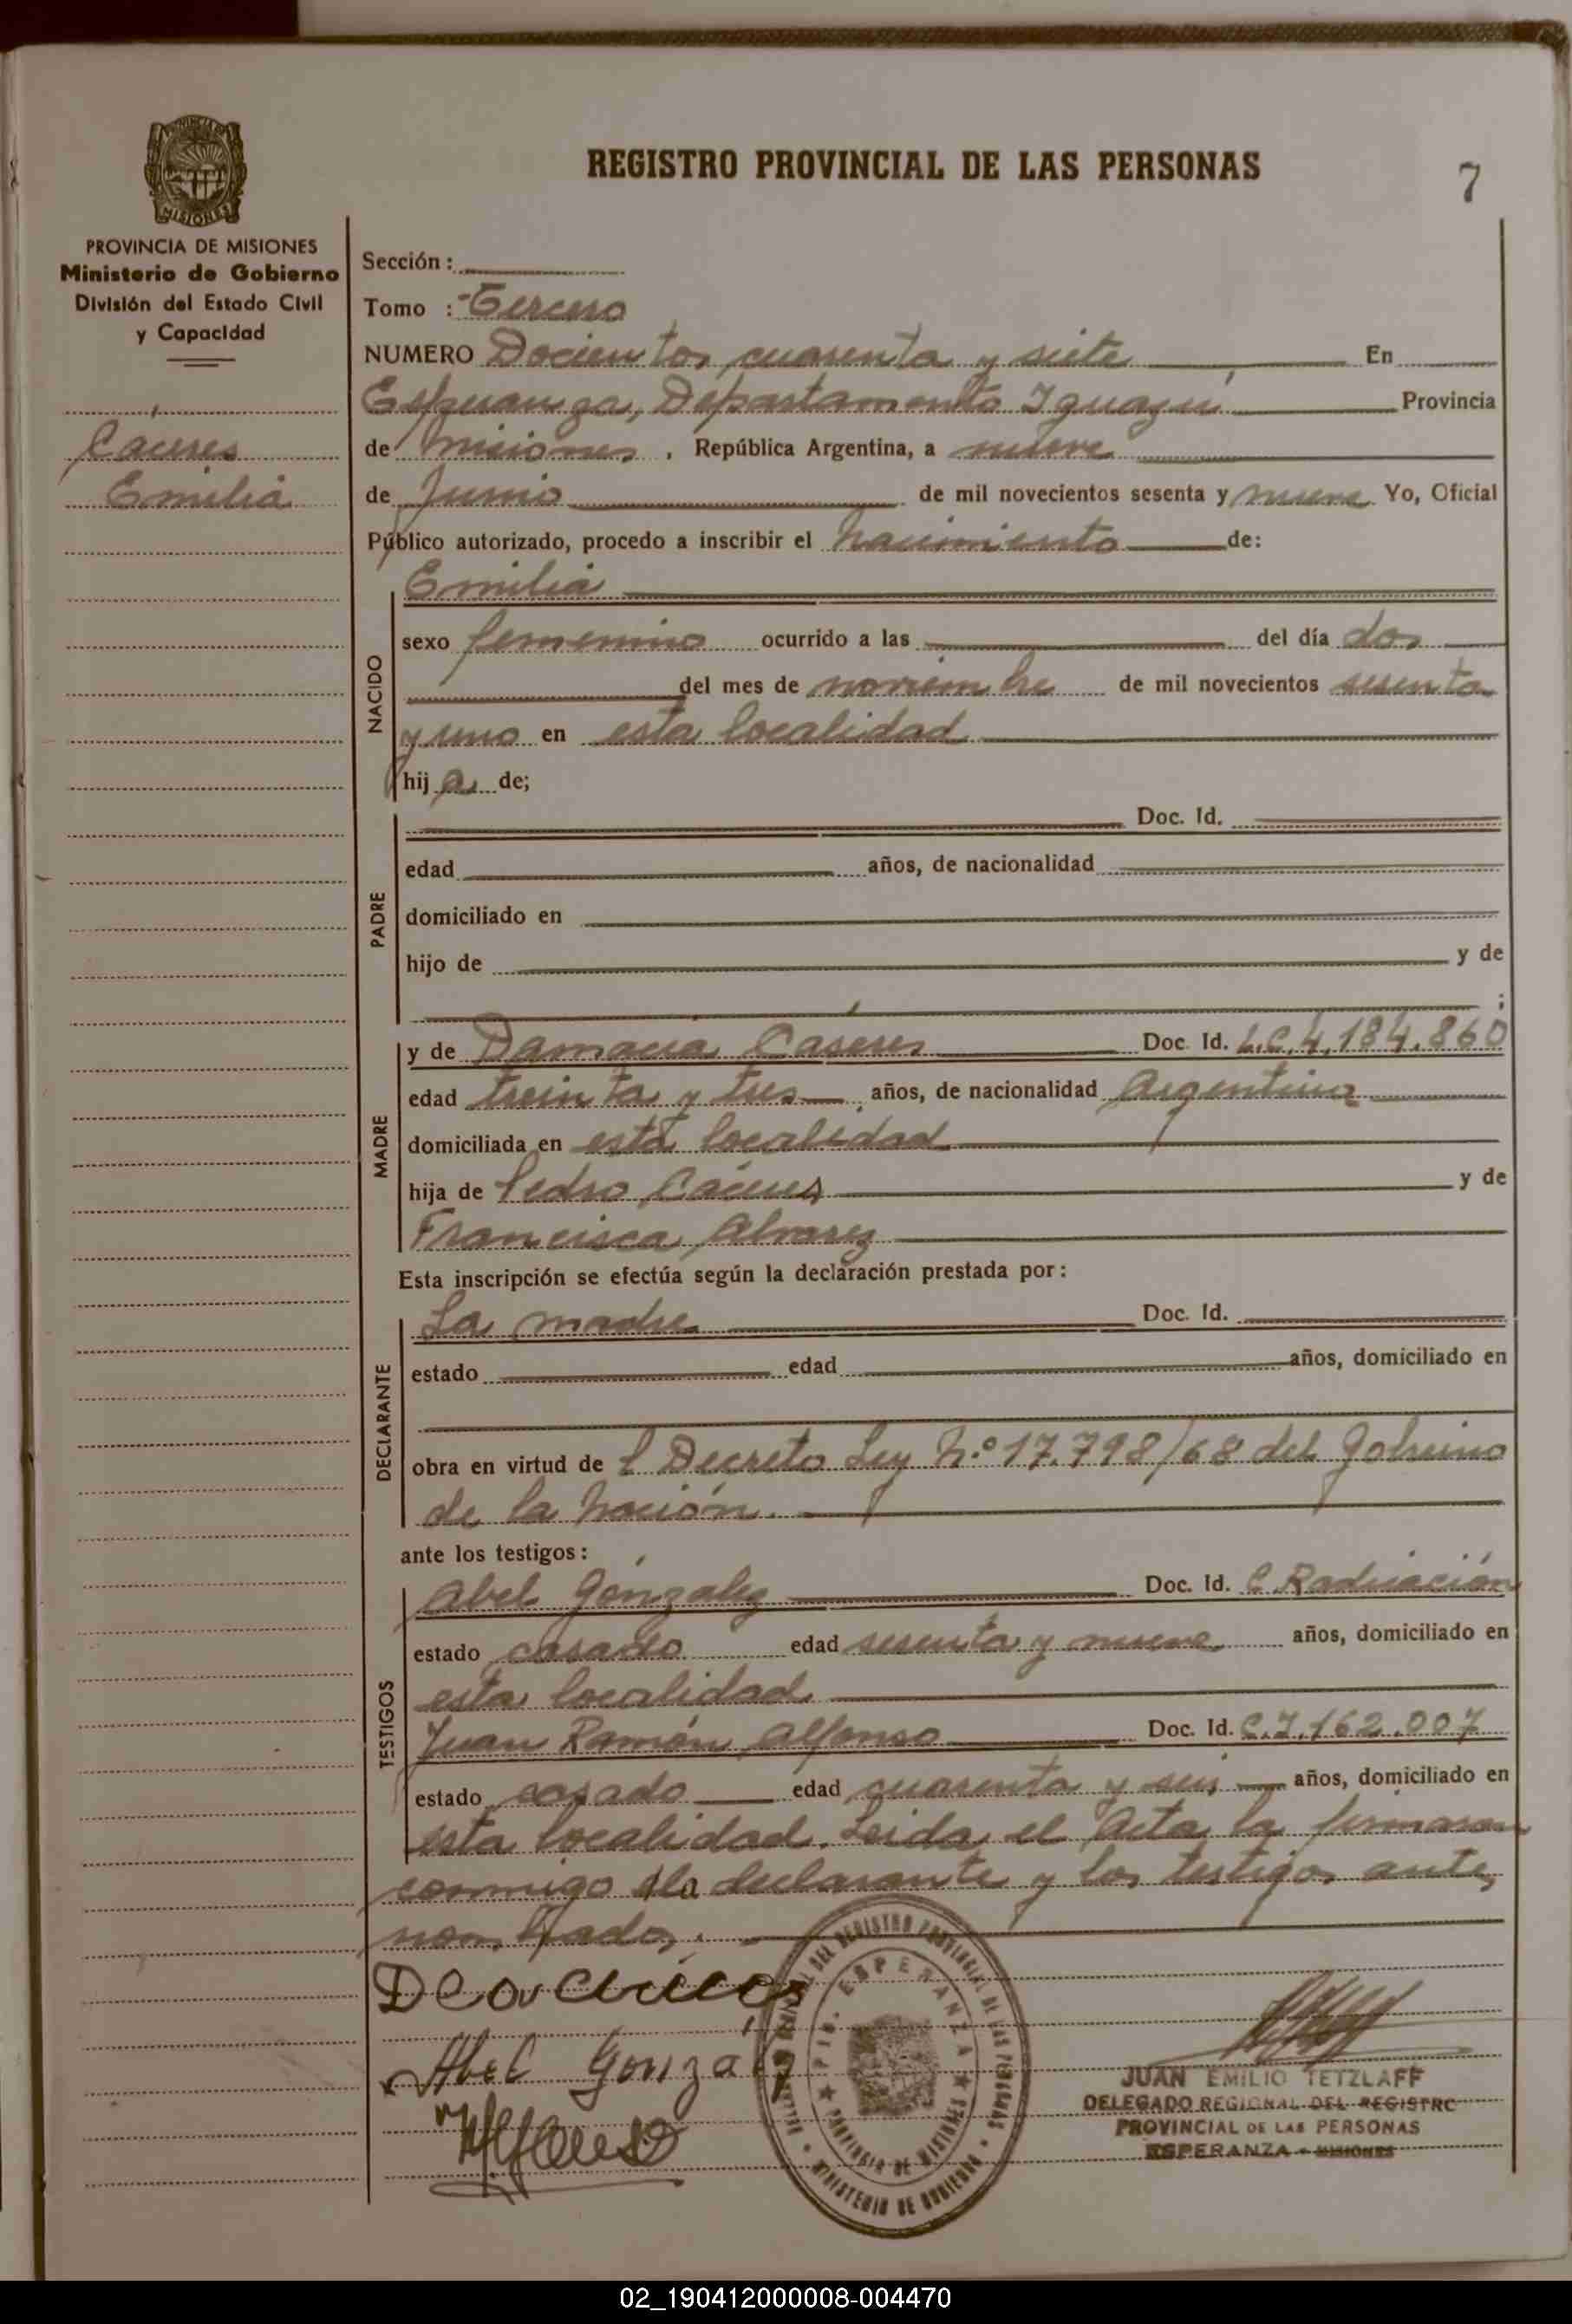 REGISTRO PROVINCIAL DE LAS PERSONAS
7
MISIONES
PROVINCIA DE MISIONES
Ministerio de Gobierno
División del Estado Civil
y Capacidad
Cáceres
Emilia
Sección :
Tomo : Tercero
NUMERO Docientos cuarenta y siete En
Esperanza, Departamento Iguazú Provincia
de Misiones , República Argentina, a nueve
de Junio de mil novecientos sesenta y nueve Yo, Oficial
Público autorizado, procedo a inscribir el nacimiento de:
NACIDO
Emilia
sexo femenino ocurrido a las del día dos
del mes de noviembre de mil novecientos sesenta
y uno en esta localidad
hij a de;
PADRE
Doc. Id.
edad años, de nacionalidad
domiciliado en
hijo de y de
;
MADRE
y de Damacia Cáseres Doc. Id. L.C.4.184.860
edad treinta y tres años, de nacionalidad Argentina
domiciliada en esta localidad
hija de Pedro Cáceres y de
Francisca Alvarez
Esta inscripción se efectúa según la declaración prestada por:
DECLARANTE
La madre Doc. Id.
estado edad años, domiciliado en
obra en virtud de l Decreto Ley N.º 17.798/68 del Gobierno
de la Nación.
ante los testigos:
TESTIGOS
Abel González Doc. Id. C. Radicación
estado casado edad sesenta y nueve años, domiciliado en
esta localidad
Juan Ramón Alfonso Doc. Id. C.I.162.007
estado casado edad cuarenta y seis años, domiciliado en
esta localidad. Leida el Acta la firmaran
conmigo la declarante y los testigos ante
nombrados.
Abel Gonzalez
Alfonso
ESPERANZA
PROVINCIA DE MISIONES
MINISTERIO DE GOBIERNO
JUAN EMILIO TETZLAFF
DELEGADO REGIONAL DEL REGISTRO
PROVINCIAL DE LAS PERSONAS
ESPERANZA - MISIONES
02_190412000008-004470